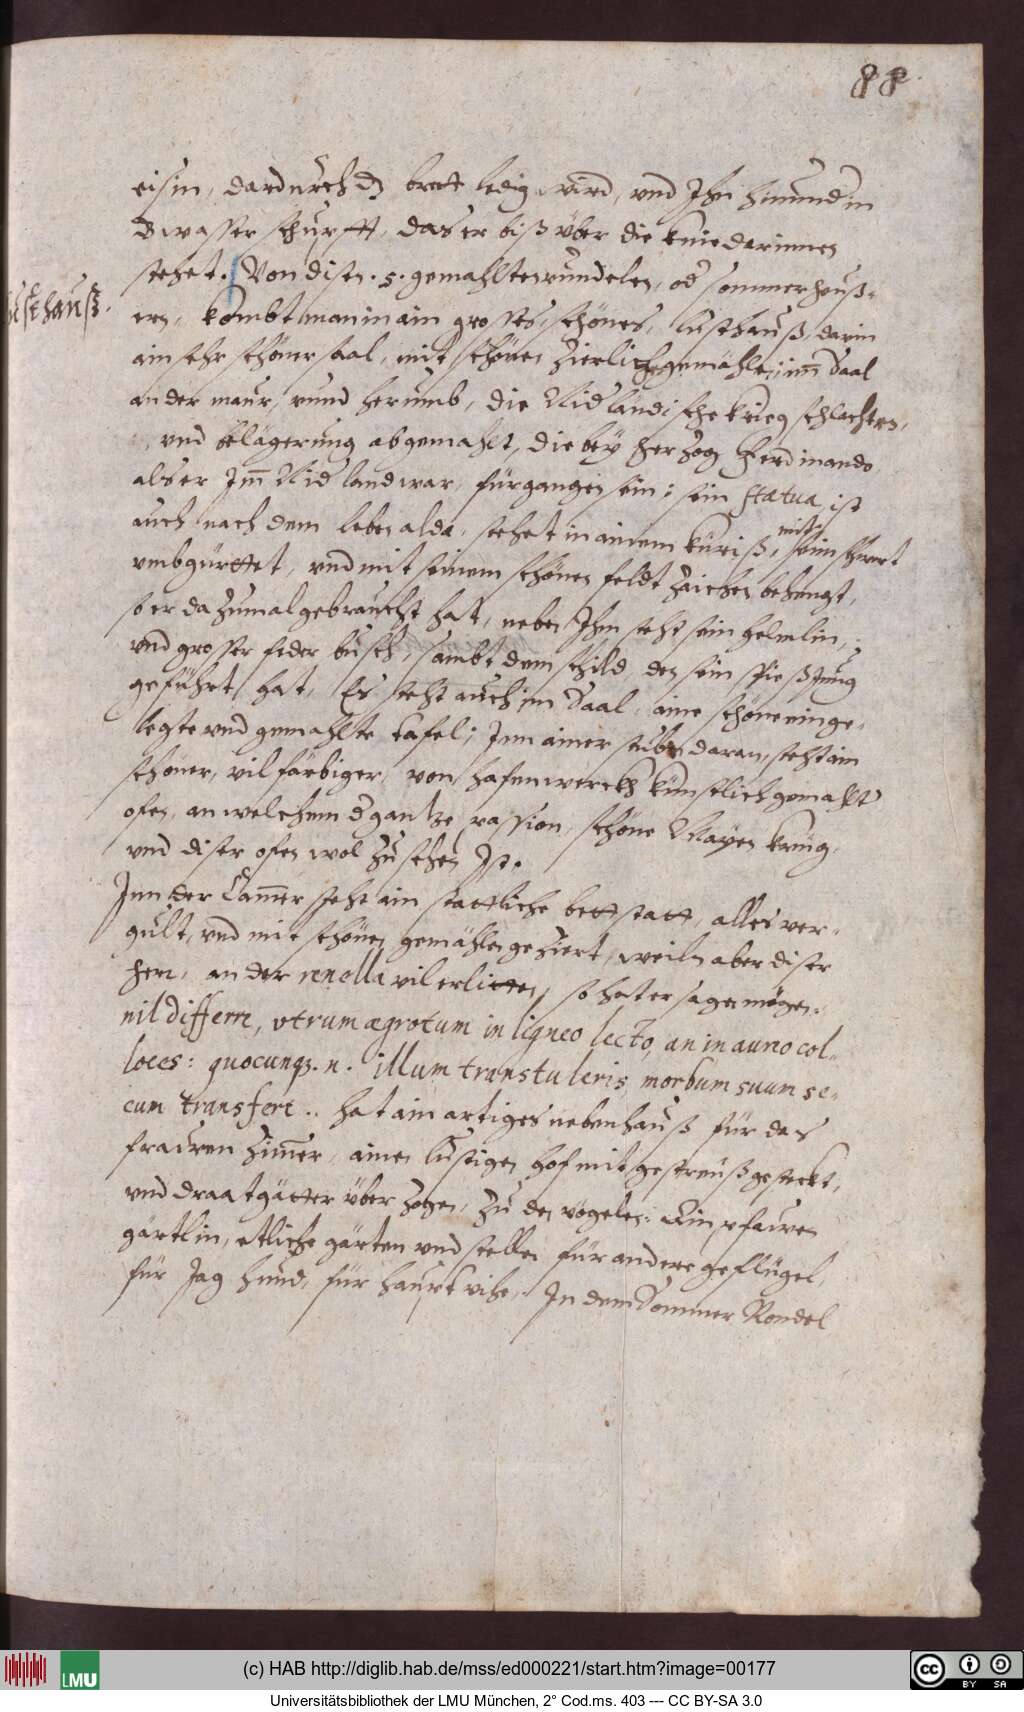 88
eisin, dardurch dz brett ledig wird, und Ihn hinund in
Dwasser schupfft, das er biß über die knie darinnen
stehet. Von disen .5. gemahlten rundelen, od sommerheuß-
Lusthauß.
ern, kombt man in ain grosses, schönes, lusthauß, darin
ain sehr schöner saal, mit schönen zierlich gemähle, im Saal
an der maur, rund herumb, die Niderländische krieg schlachten,
und belägerung abgemahlt, die bey Herzog Ferdinando
als er Im Niderland war, fürgangen sein: sein statua ist
auch nach dem leben alda, stehet in ainem küriß, mit seim schwert
umbgürttet, und mit seinem schönen feldt zaichen behengt,
so er dazumal gebraucht hat, neben Ihm steht sein helmlin,
und grosser feder busch, sambt dem schild den sein spießjung
geführt hat, Es steht auch im Saal, aine schöne einge-
legte und gemahlte tafel; Inn ainer stuben daran, steht ain
schöner, vil färbiger, von hafnerwerckh künstlich gemahlt
ofen, an welchem d gantze passion, schöne Mayen krüeg,
und diser ofen wol zu sehen Ist.
Inn der Camer steht ain stattliche bettstatt, alles ver-
gült, und mit schönen gemählen geziert, weiln aber diser
herr, an der renella vil erlitten, so hat er sagen mögen:
nil differre, utrum ægrotum in ligneo lecto, an in aureo col-
loces: quocunq3. n. illum transtuleris, morbum suum se-
cum transfert.. hat ain artiges nebenhauß für das
frawenzimer, ainen lustigen hof mit gestreuß gesteckt,
und draatgätter über zogen, zu den vögelen: Ain pfawen
gärtlin, etliche gärten und stellen für andere geflügel,
für Jag hund, für haupt vihe, In dem Sommer Rondel
(c) HAB http://diglib.hab.de/mss/ed000221/start.htm?image=00177
LMU
cc BY SA
Universitätsbibliothek der LMU München, 2° Cod.ms. 403 --- CC BY-SA 3.0